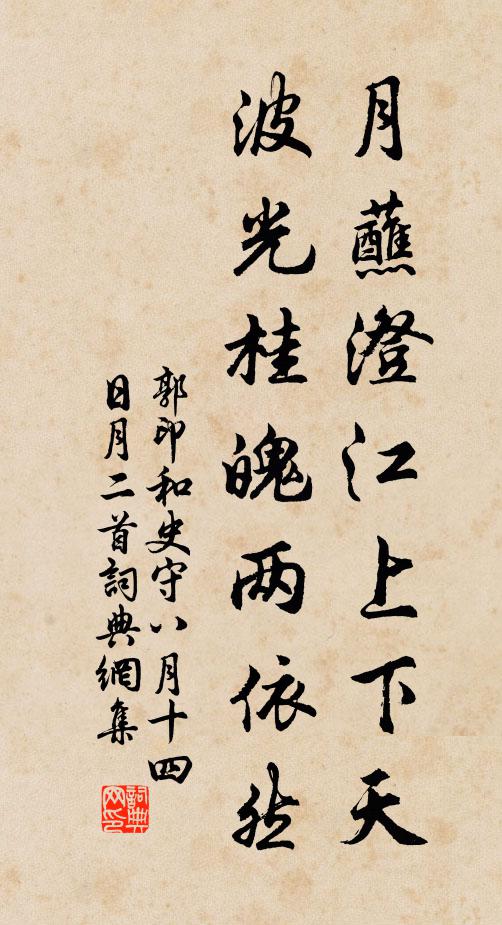 月蘸澄江上下天
波光桂魄两依然
郭印和史守八月十四
日月二首詞典網集
詞典网印